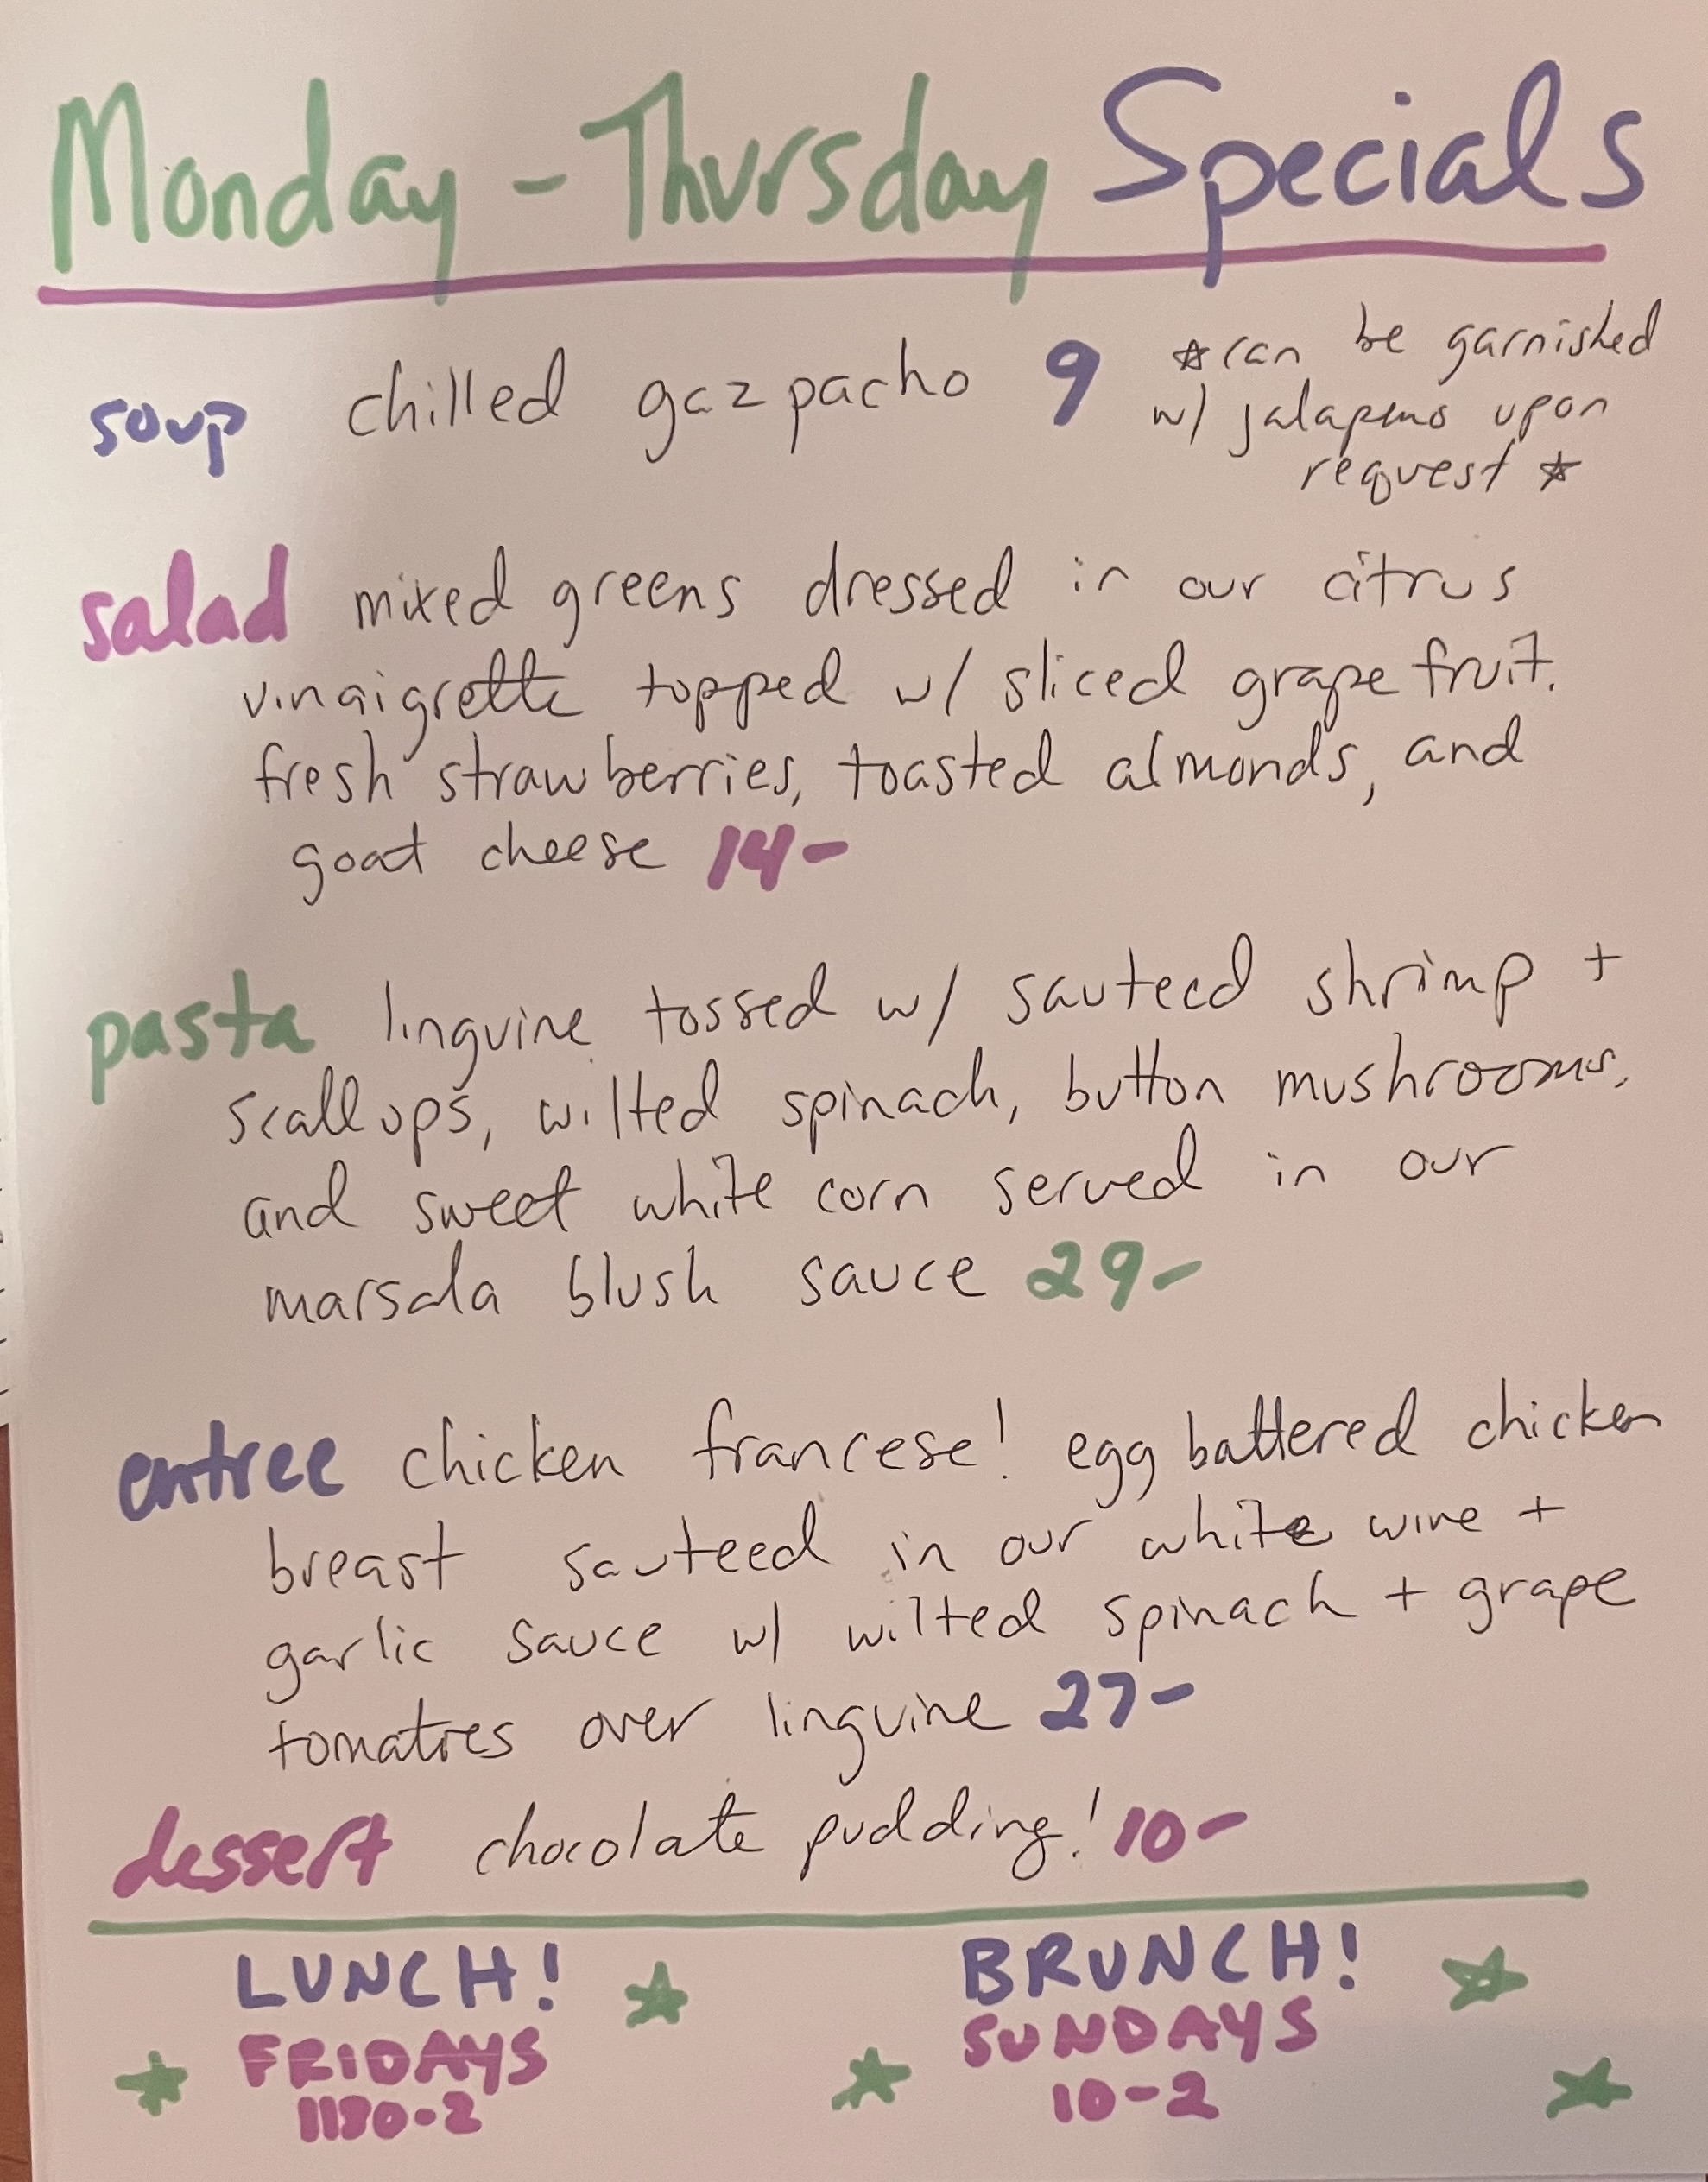 Monday - Thursday Specials
soup chilled gazpacho 9 ☆can be garnished
w/ jalapenos upon
request ☆
salad mixed greens dressed in our citrus
vinaigrette topped w/ sliced grapefruit.
fresh strawberries, toasted almonds, and
goat cheese 14-
pasta linguine tossed w/ sauteed shrimp +
scallops, wilted spinach, button mushrooms,
and sweet white corn served in our
marsala blush sauce 29-
entree chicken francese! egg battered chicken
breast sauteed in our white wine +
garlic sauce w/ wilted spinach + grape
tomatoes over linguine 27-
dessert chocolate pudding! 10-
LUNCH!
FRIDAYS
1130-2
BRUNCH!
SUNDAYS
10-2